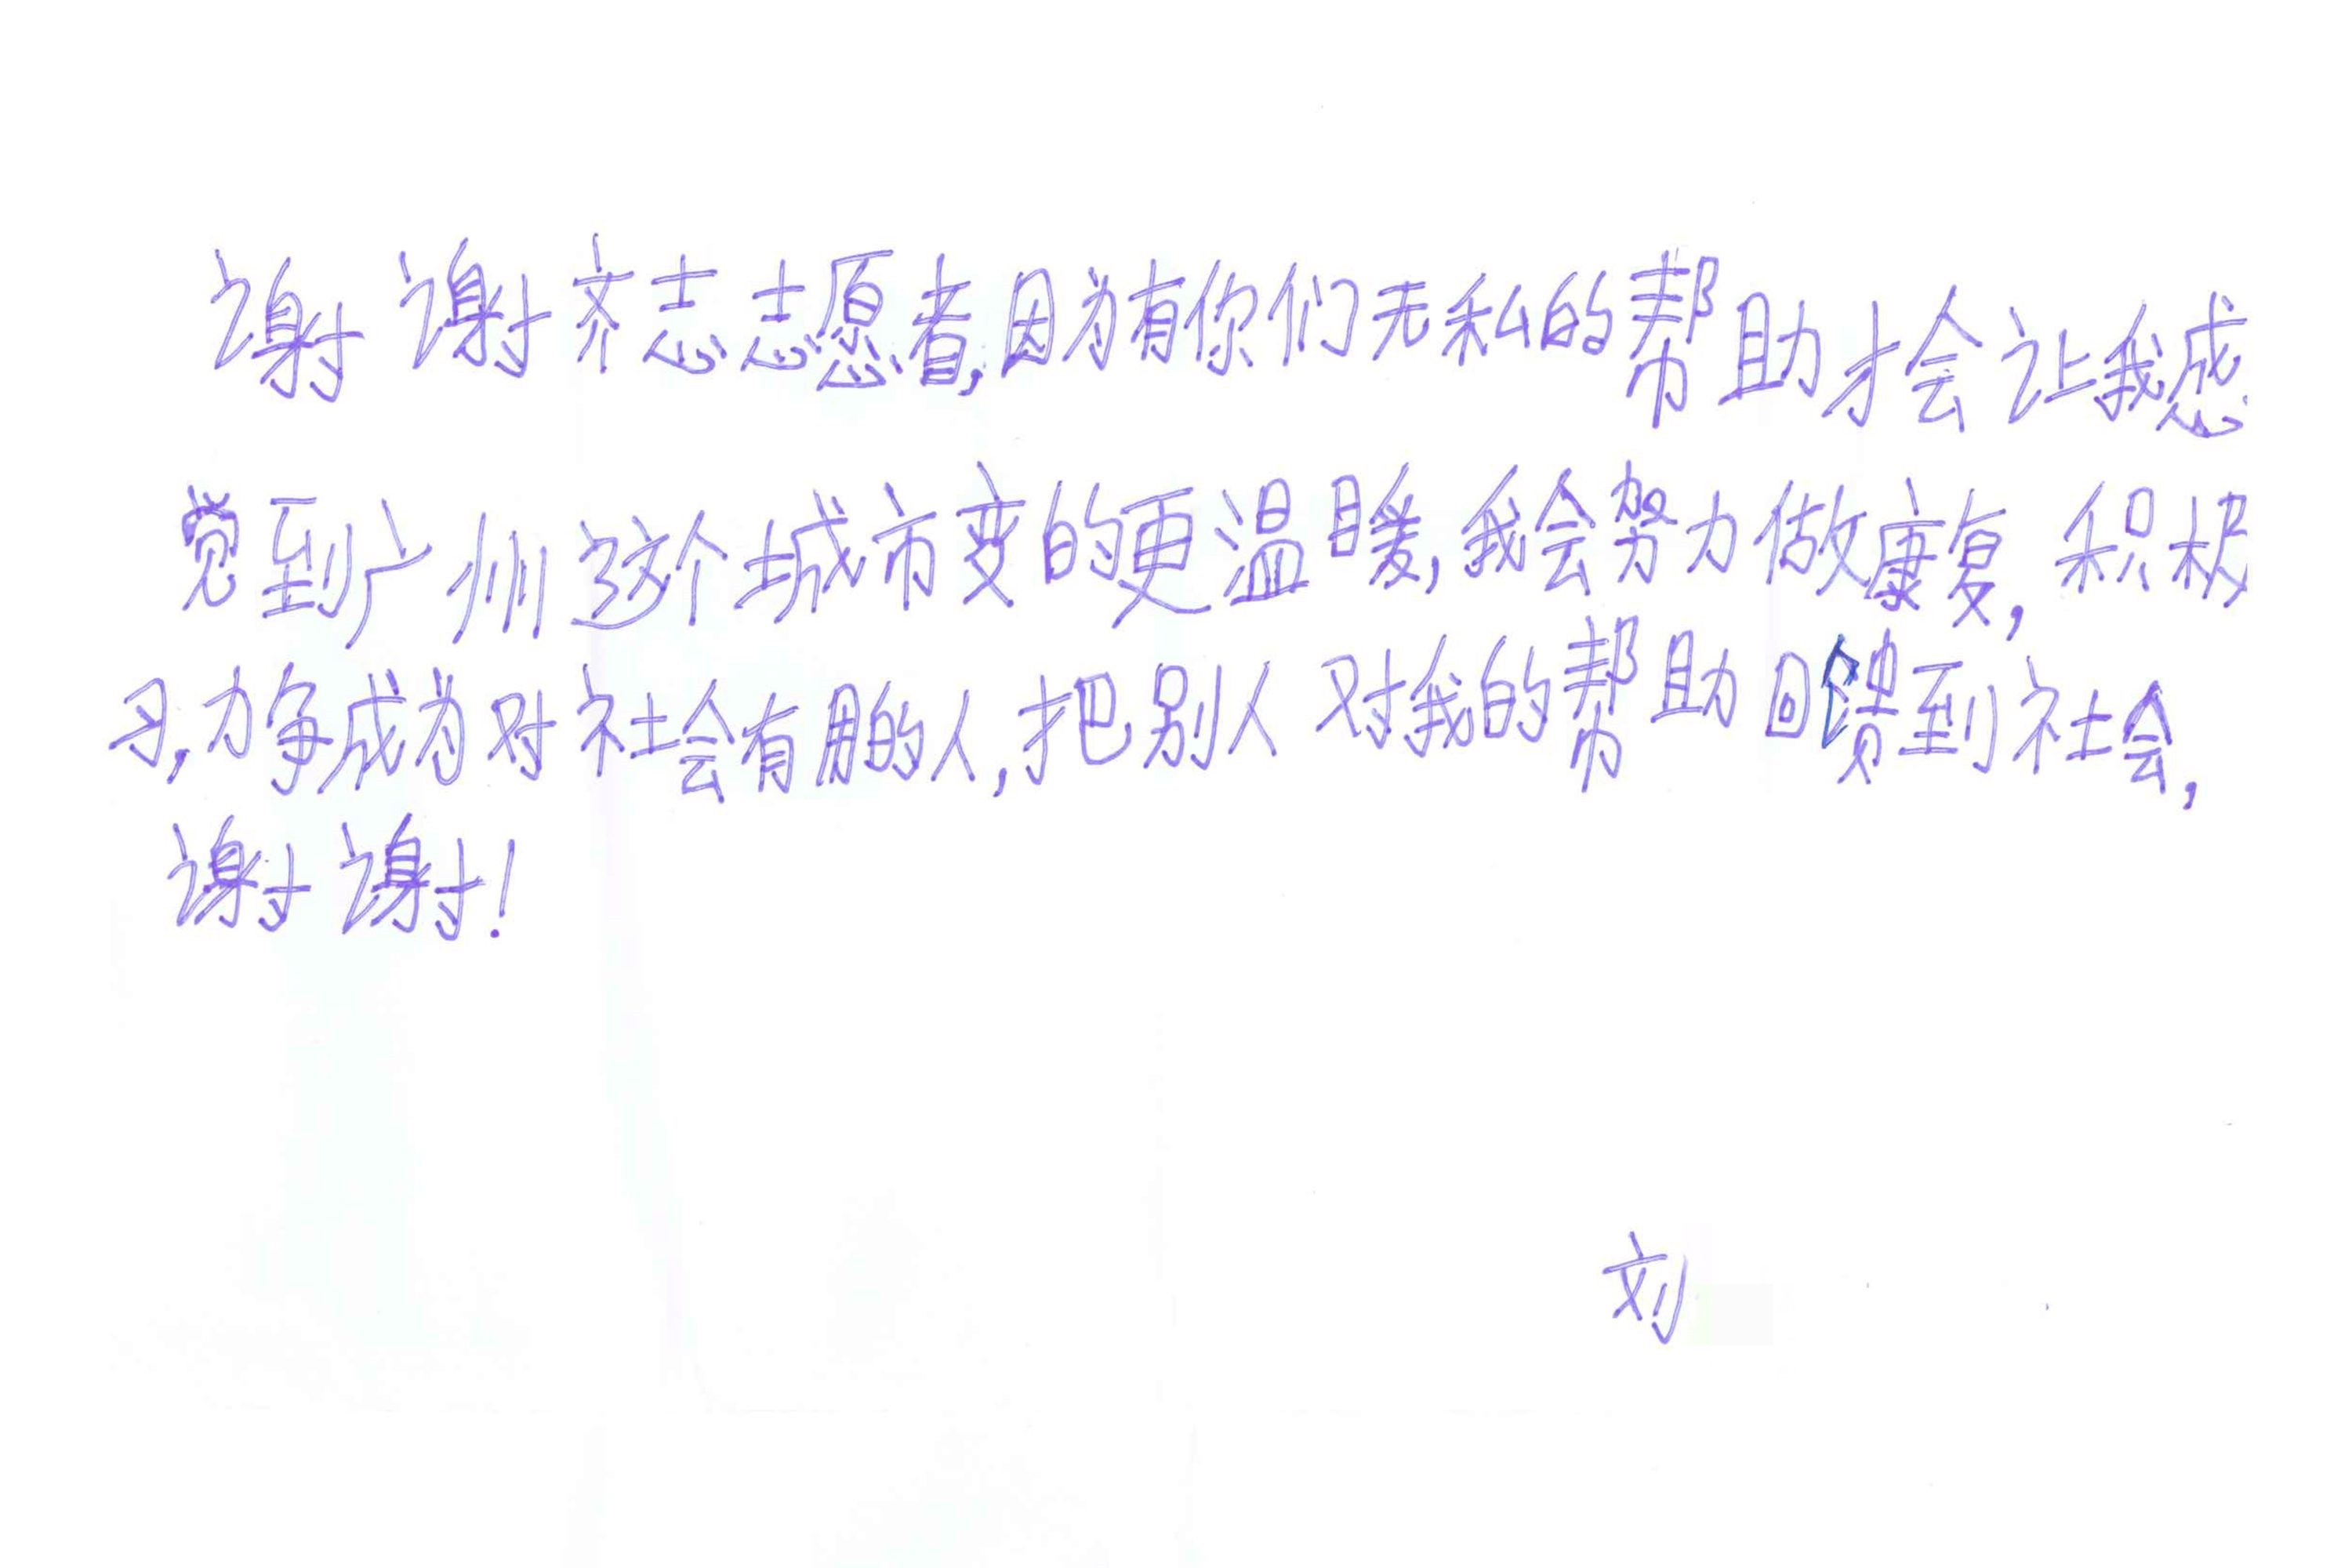 谢谢齐志志愿者,因为有你们无私的帮助才会让我感
觉到广州这个城市变的更温暖,我会努力做康复,积极
习,力争成为对社会有用的人,把别人对我的帮助回馈到社会,
谢谢!
刘